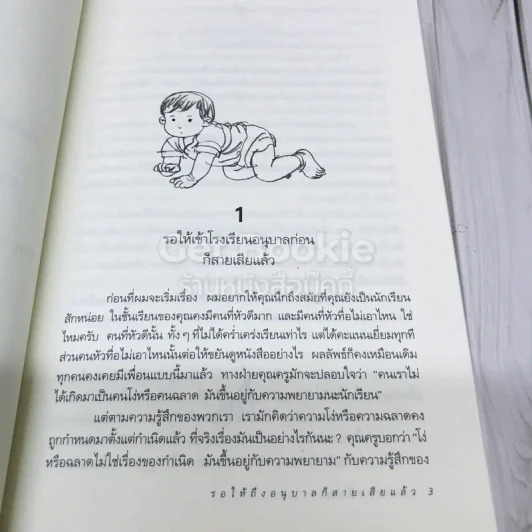 1
รอให้เข้าโรงเรียนอนุบาลก่อน
ก็สายเสียแล้ว
Get Bookie
ร้านหนังสือมือคี้
ก่อนที่ผมจะเริ่มเรื่อง ผมอยากให้คุณนึกถึงสมัยที่คุณยังเป็นนักเรียน
สักหน่อย ในชั้นเรียนของคุณคงมีคนที่หัวดีมาก และมีคนที่หัวที่อไม่เอาไหน ใช่
ไหมครับ คนที่หัวดีนั้น ทั้งๆ ที่ไม่ได้คร่ำเคร่งเรียนเท่าไร แต่ได้คะแนนเยี่ยมทุกที
ส่วนคนหัวที่อไม่เอาไหนนั้นต่อให้ขยันดูหนังสืออย่างไร ผลลัพธ์ก็คงเหมือนเดิม
ทุกคนคงเคยมีเพื่อนแบบนี้มาแล้ว ทางฝ่ายคุณครูมักจะปลอบใจว่า "คนเราไม่
ได้เกิดมาเป็นคนโง่หรือคนฉลาด มันขึ้นอยู่กับความพยายามนะนักเรียน"
แต่ตามความรู้สึกของพวกเรา เรามักคิดว่าความโง่หรือความฉลาดคง
ถูกกำหนดมาตั้งแต่กำเนิดแล้ว ที่จริงเรื่องมันเป็นอย่างไรกันนะ ? คุณครูบอกว่า "โง่
หรือฉลาดไม่ใช่เรื่องของกำเนิด มันขึ้นอยู่กับความพยายาม" กับความรู้สึกของ
รอให้ถึงอนุบาลก็สายเสียแล้ว 3